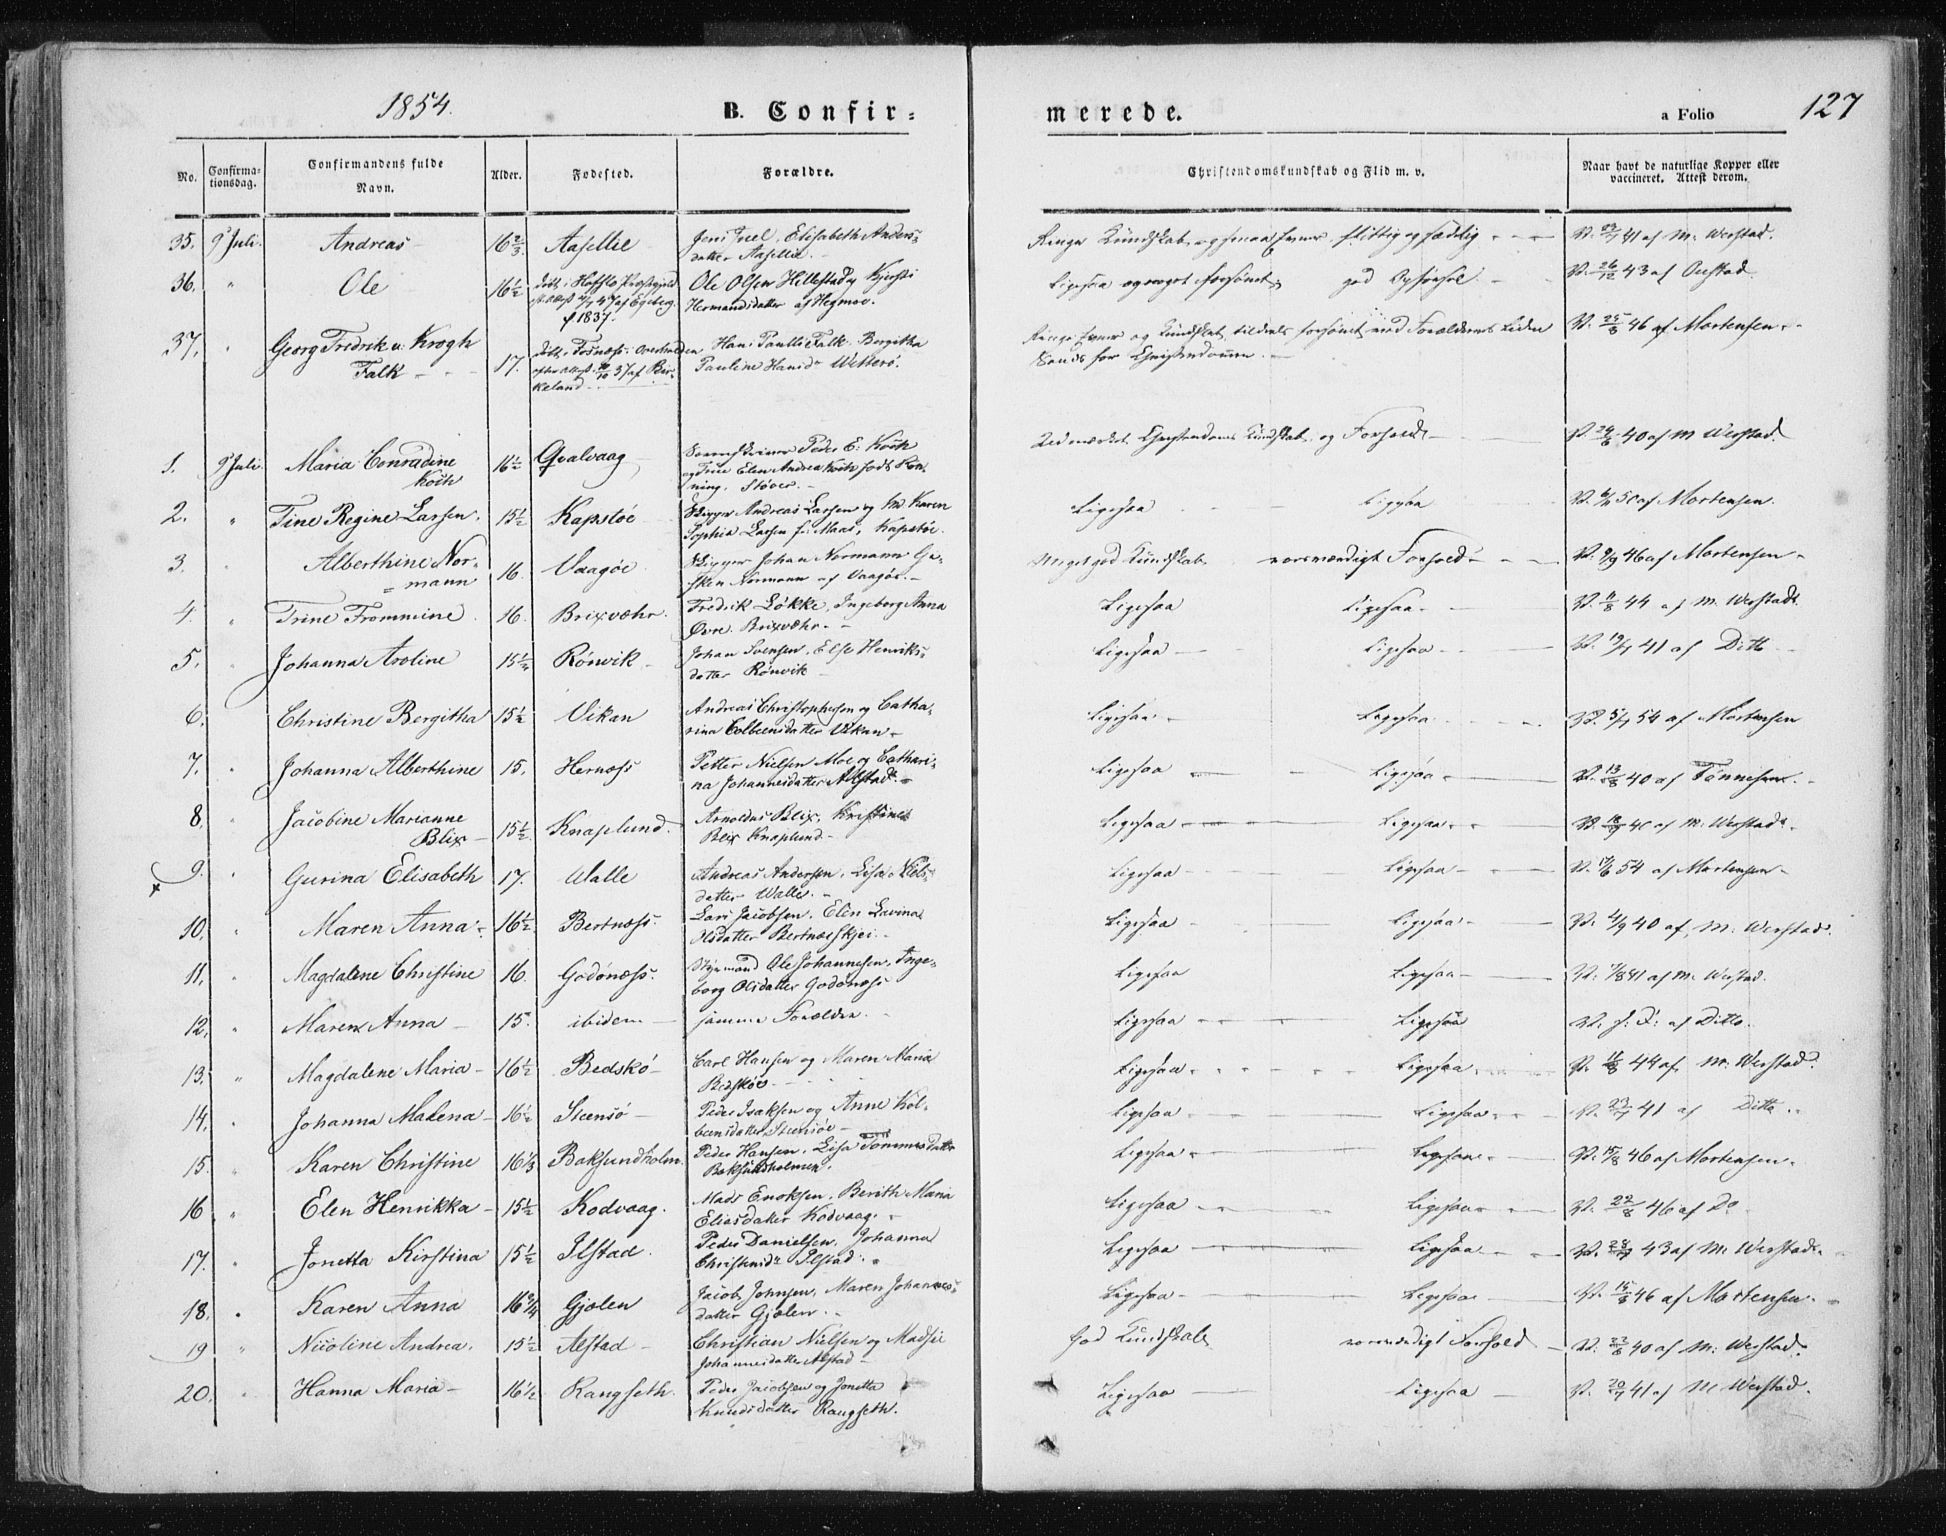 1854.
B. Confir-
merede.
a Folio 127
No. Confirma-tionsdag. Confirmandens fulde Navn. Alder. Fødested. Forældre. Christendomskundskab og Flid m. v. Naar havt de naturlige Kopper eller vaccineret. Attest derom.
35. 9 Juli. Andreas 16 2/3 Aasellie Jens Juel, Elisabeth Anders-
datter Aasellie. Ringe Kundskab, og smaa Evner flittig og sædelig V. 22/7 41 af M. Werstad.
36. " Ole 16 1/2 Ole Olsen Hillestad og Kjersti
Hermandsdatter af Hegmoe. f 1837. Ligesaa god Opførsel. V. 26/12 43 af
37. " Georg Fredrik v. Krogh
Falk 17. døbt i Fosnæss Overhalden
efter Attest 37 af Bir-
keland Hans Paulli Falk. Bergitha
Pauline Hansdr Wetterø. Ringe Evner og Kundskab, tildeels forsømt
Sands for Christendommen. V. 25/8 46 af Mortensen
1. 9 Juli. Maria Conradine
Koch 16 1/2 Qvalvaag Peder E. Koch
og Frue Elen Andrea Koch født Røn-
ning, Støver. Udmærket Christendoms Kundskab og Forhold V. 24/8 40 af M Werstad.
2. " Tine Regine Larsen. 15 1/2 Kapstøe Skipper Andreas Larsen og Karen
Sophia Larsen f. Maas, Kapstøe. Ligesaa Ligesaa V. 50 af Mortensen.
3. " Alberthine Nor-
mann 16. Vaagøe Skipper Johan Normann
Normann af Vaagøe. Meget god Kundskab roesværdigt Forhold V. 9/9 46 af Mortensen
4. " Trine Frommine 16. Brixværhr. Fredrik Løkke, Ingeborg Anna
Øvre Brixværhr. Ligesaa Ligesaa V. 11/8 44 af M. Werstad.
5. " Johanna Aroline 15 1/4 Rønvik Johan Svensen, Else Henriks-
datter Rønvik Ligesaa Ligesaa V. 19/7 41 af Ditto
6. Christine Bergitha 15 1/2 Vikan Andreas Christophersen og Catha-
rina Colbensdatter Vikan Ligesaa Ligesaa V. 5/7 54 af Mortensen
7. " Johanna Alberthine 15. Hernæss Petter Nielsen Moe og Cathari-
na Johannesdatter Alstad. Ligesaa Ligesaa V. 13/8 40 af Tønnesen.
8. " Jacobine Marianne
Blix 15 1/2 Knaplund. Arnoldus Blix, Kristine
Blix Knaplund Ligesaa Ligesaa V. 40 af M. Werstad.
9. " Gurina Elisabeth 17. Walle Andreas Andersen, Lisa Niels-
datter Walle. Ligesaa Ligesaa V. 54 af Mortensen
10. " Maren Anna 16 1/2 Bertnæss. Lars Jacobsen, Elen Lavina
Olsdatter Bertnæsskjei. Ligesaa Ligesaa V. 4/9 40 af M. Werstad.
11. " Magdalene Christine 16. Godønæss. Styrmand Ole Johannesen, Inge-
borg Olsdatter Godønæss Ligesaa Ligesaa V. 7/8 41 af M. Werstad.
12. " Maren Anna 15. ibidem samme Forældre. Ligesaa Ligesaa V. s. D. af Ditto.
13. " Magdalene Maria 16 1/2 Bedskø Carl Hansen og Maren Maria
Bedskøe Ligesaa Ligesaa V. 11/8 44 af M. Werstad.
14. " Johanna Malena 16 1/2 Steensø Peder Isaksen og Anne Kol-
beensdatter Steensøe Ligesaa Ligesaa V. 23/7 41 af Ditto
15. " Karen Christine 16 1/3 Baksundholm. Peder Hansen, Lisa Tommesdatter
Baksundholmen. Ligesaa Ligesaa V. 15/8 46 af Mortensen.
16 " Elen Henrikka 15 1/2 Kodvaag. Mads Enoksen, Berith Maria
Eliasdatter Kodvaag. Ligesaa Ligesaa V. 22/8 46 af Do
17. " Jonetta Kirstina 15 1/2 Ilstad. Peder Danielsen, Johanna
Christensdr Ilstad. Ligesaa Ligesaa V. 28/7 43 af M. Werstad.
18. " Karen Anna 16 3/4 Gjølen Jacob Johnsen, Maren Johannes-
datter Gjølen. Ligesaa Ligesaa V. 15/8 46 af Mortensen.
19 " Nicoline Andrea. 15 1/2 Alstad Christian Nielsen og Madsie
Johannesdatter Alstad God Kundskab roesværdigt Forhold V. 22/8 40 af M. Werstad.
20. " Hanna Maria 16 1/2 Rangseth. Peder Jacobsen og Jonetta
Knudsdatter Rangseth. Ligesaa Ligesaa V. 20/7 41 af M Werstad.